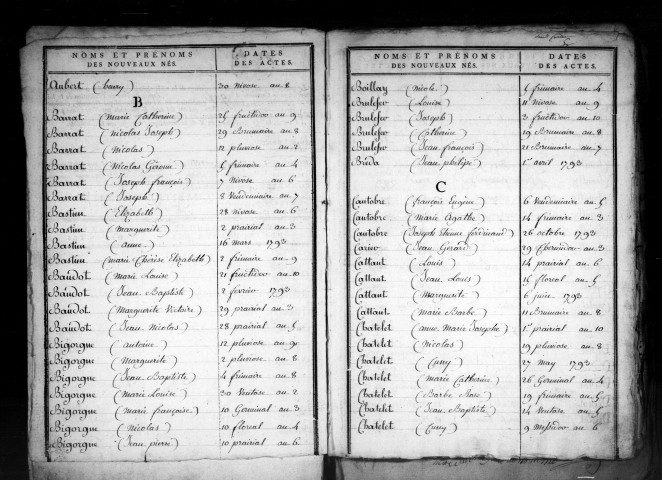 NOMS ET PRÉNOMS
DES NOUVEAUX NÉS.
DATES
DES ACTES.
Aubert 30 nivose an 8
B
Barrat (Marie Catherine) 25 fructidor an 9
Barrat (nicolas Joseph) 29 Brumaire an 8
Barrat (Nicolas) 12 pluviose an 2
Barrat (Nicolas Gérome) 5 frimaire an 4
Barrat (Joseph françois) 7 Nivose an 6
Barrat (Joseph) 8 Vendémiaire an 7
Bastien (Elizabeth) 28 nivose an 6
Bastien (Marguerite) 2 prairial an 3
Bastien (anne) 16 mars 1793
Bastien (marie Thérèse Elizabeth) 2 frimaire an 9
Baudot (Marie Louise) 21 fructidor an 10
Baudot (Jean Baptiste) 2 fevrier 1793
Baudot (Marguerite Victoire) 29 prairial an 3
Baudot (Jean Nicolas) 28 prairial an 5
Bigorgne (antoine) 12 pluviose an 9
Bigorgne (Marguerite) 2 pluviose an 8
Bigorgne (Jean Baptiste) 4 frimaire an 8
Bigorgne (Marie Louise) 30 Ventose an 2
Bigorgne (marie françoise) 10 Germinal an 3
Bigorgne (Nicolas) 10 floreal an 4
Bigorgne (Jean pierre) 10 prairial an 6
NOMS ET PRÉNOMS
DES NOUVEAUX NÉS.
DATES
DES ACTES.
Boillay (Nicole) 5 frimaire an 4
Brulefer (Louise) 11 Nivose an 9
Brulefer (Joseph) 3 fructidor an 10
Brulefer (Catherine) 19 Brumaire an 8
Brulefer (Jean françois) 21 Brumaire an 7
Bréda (Jean philipe) 1er avril 1793
C
Cantobre (françois Eugène) 6 Vendémiaire an 5
Cantobre (Marie Agathe) 14 frimaire an 3
Cantobre (Joseph Etienne ferdinand) 26 octobre 1793
(Jean Gérard) 29 thermidor an 3
Cattant (Louis) 14 prairial an 6
Cattant (Jean Louis) 15 floreal an 5
Cattant (Marguerite) 6 juin 1793
Cattant (Marie Barbe) 11 Brumaire an 8
Chatelet (anne Marie Josephe) 1er prairial an 10
Chatelet (Nicolas) 19 pluviose an 8
Chatelet (Cuny) 27 may 1793
Chatelet (marie Catherine) 26 Germinal an 4
Chatelet (Barbe Rose) 19 frimaire an 5
Chatelet (Jean Baptiste) 14 Ventose an 5
Chatelet (Cuny) 9 Messidor an 6